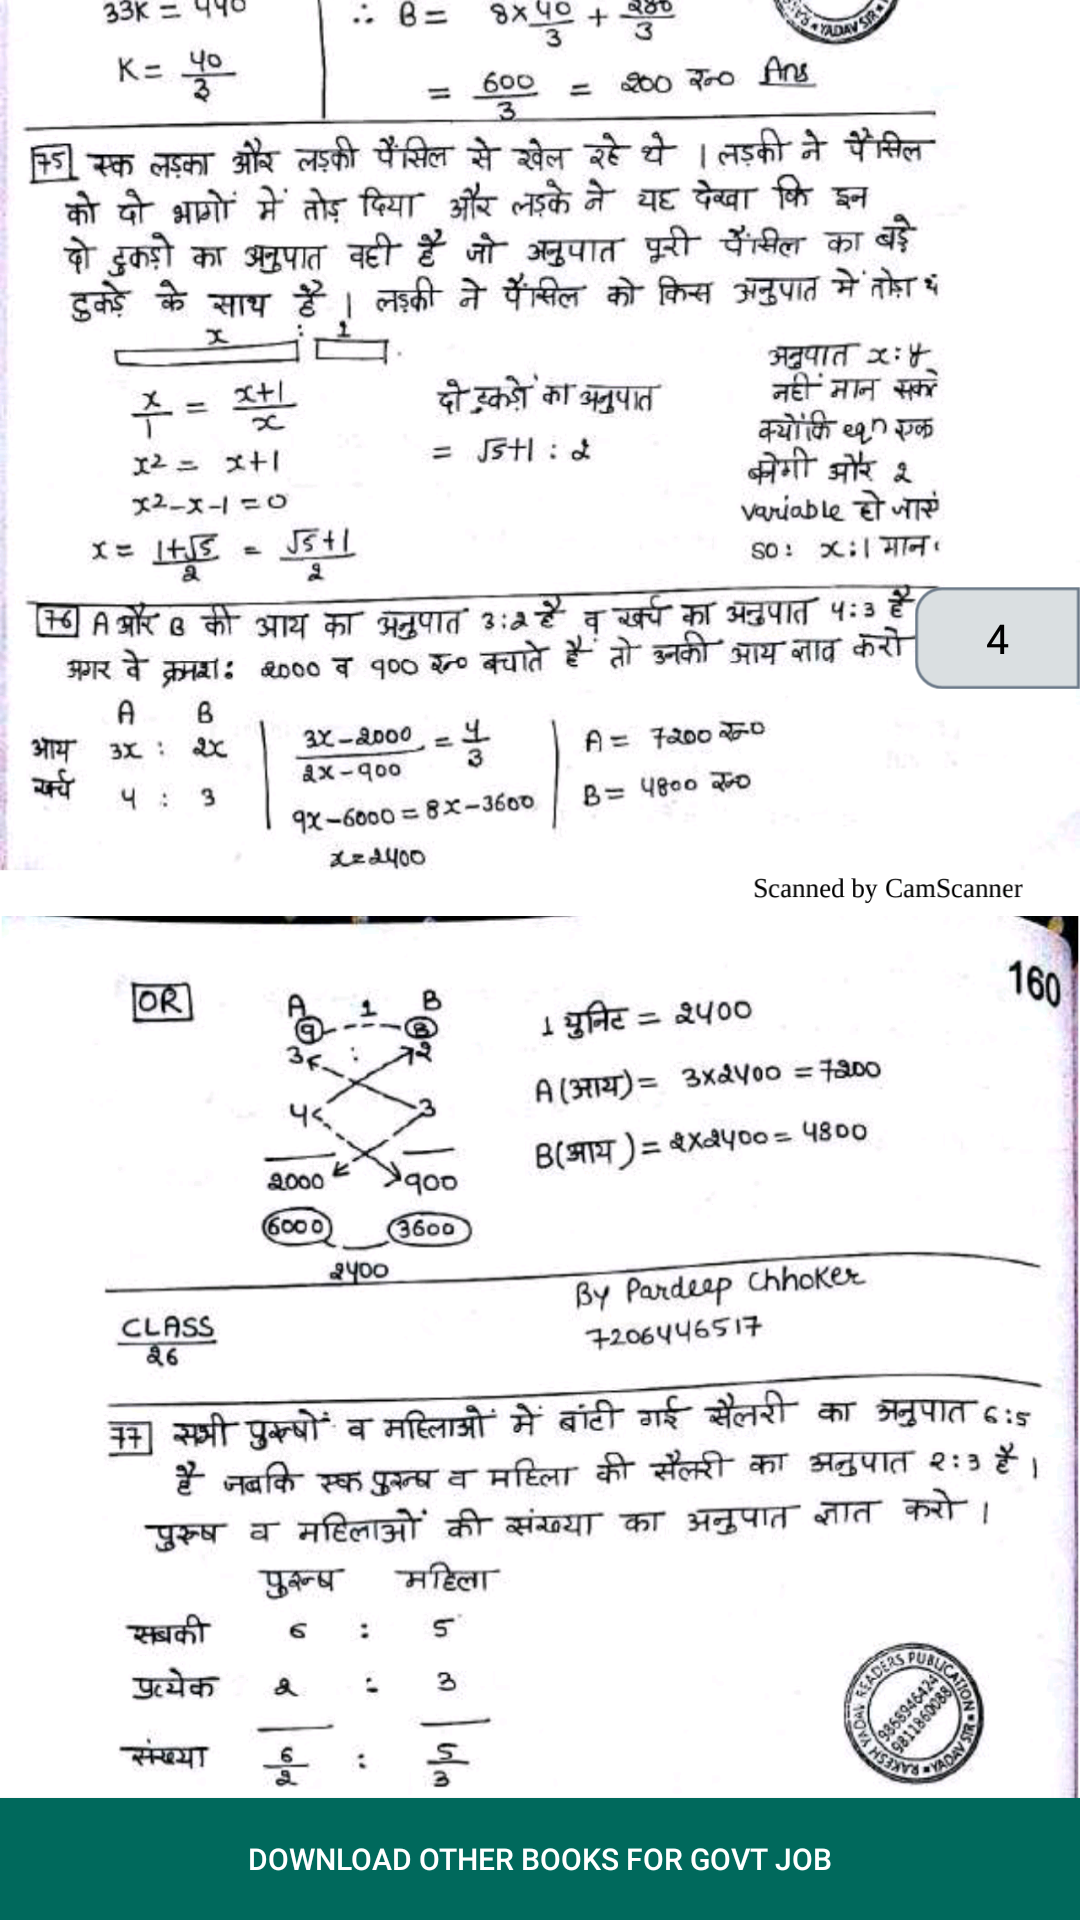 33K = 440
∴ B = 8×40/3 + 280/3
K = 40/3
= 600/3 = 200 रू० Ans
75 एक लड़का और लड़की पैंसिल से खेल रहे थे । लड़की ने पैंसिल
को दो भागों में तोड़ दिया और लड़के ने यह देखा कि इन
दो टुकड़ो का अनुपात वही है जो अनुपात पूरी पैंसिल का बड़े
टुकड़े के साथ है । लड़की ने पैंसिल को किस अनुपात में तोड़ा
x : 1
x/1 = x+1/x
x2 = x+1
x2-x-1 = 0
x = 1+√5/2 = √5+1/2
दो टुकड़ों का अनुपात
= √5+1 : 2
अनुपात x:y
नहीं मान सकते
क्योंकि eqn एक
बनेगी और 2
variable हो जाएंगे
so: x:1 मान
76 A और B की आय का अनुपात 3:2 है व खर्च का अनुपात 4:3 है
अगर वे क्रमश: 2000 व 900 रू० बचाते है तो उनकी आय ज्ञात करो
A B
आय 3x : 2x
खर्च 4 : 3
3x-2000/2x-900 = 4/3
9x-6000 = 8x-3600
x=2400
A = 7200 रू०
B = 4800 रू०
4
Scanned by CamScanner
160
OR
A 1 B
9 8
3 : 2
4 3
2000 900
6000 3600
2400
1 युनिट = 2400
A (आय) = 3×2400 = 7200
B(आय) = 2×2400 = 4800
By Pardeep Chhoker
7206446517
CLASS
26
77 सभी पुरूषों व महिलाओं में बांटी गई सैलरी का अनुपात 6:5
है जबकि एक पुरूष व महिला की सैलरी का अनुपात 2:3 है ।
पुरूष व महिलाओं की संख्या का अनुपात ज्ञात करो ।
पुरूष महिला
सबकी 6 : 5
प्रत्येक 2 : 3
संख्या 6/2 : 5/3
YADAV READERS PUBLICATION
9868946424
9811860088
RAKESH YADAV SIR
DOWNLOAD OTHER BOOKS FOR GOVT JOB